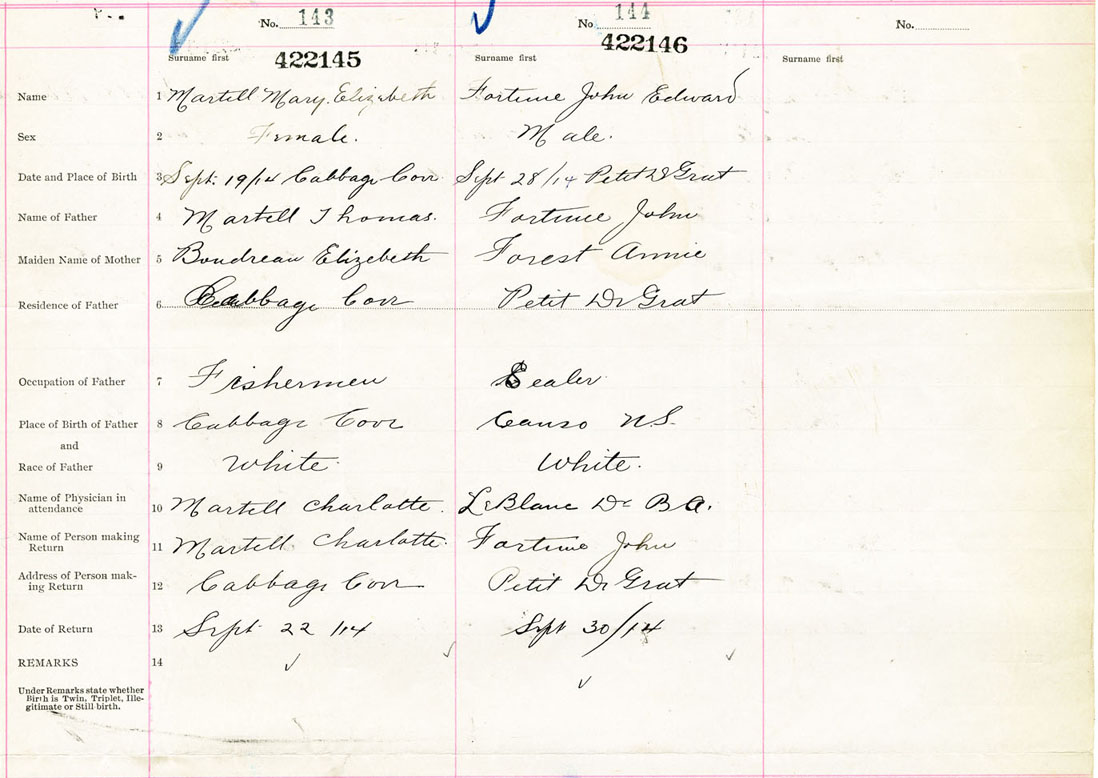 No. 143 No 144 No.
422145 422146
Surname first Surname first Surname first
Name 1 Martell Mary. Elizabeth Fortune John Edward
Sex 2 Female. Male.
Date and Place of Birth 3 Sept. 19/14 Cabbage Cove Sept 28/14 Petit De Grat
Name of Father 4 Martell Thomas. Fortune John
Maiden Name of Mother 5 Boudreau Elizebeth Forest Annie
Residence of Father 6 Cabbage Cove Petit De Grat
Occupation of Father 7 Fishermen Sealer
Place of Birth of Father 8 Cabbage Cove Canso N.S.
and
Race of Father 9 White. White.
Name of Physician in
attendance 10 Martell Charlotte. LeBlanc Dr B.A.
Name of Person making
Return 11 Martell Charlotte. Fortune John
Address of Person mak-
ing Return 12 Cabbage Cove Petit De Grat
Date of Return 13 Sept 22/14 Sept 30/14
REMARKS 14
Under Remarks state whether
Birth is Twin, Triplet, Ille-
gitimate or Still-birth.